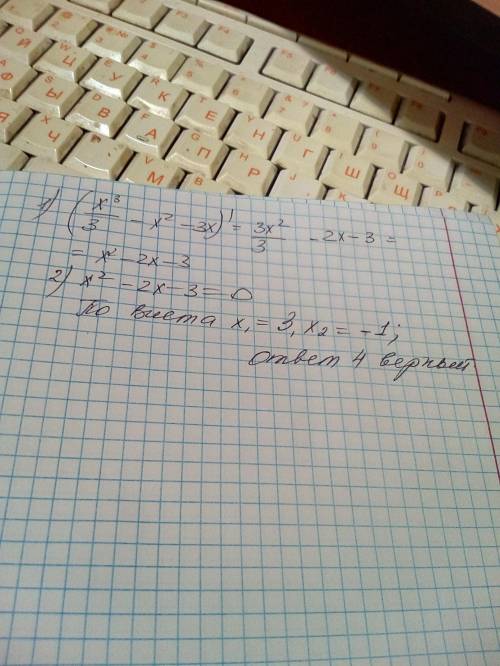 1) (x³/3 - x² - 3x)' = 3x²/3 - 2x - 3 =
= x² - 2x - 3
2) x² - 2x - 3 = 0
По виета x₁ = 3, x₂ = -1;
ответ 4 верный